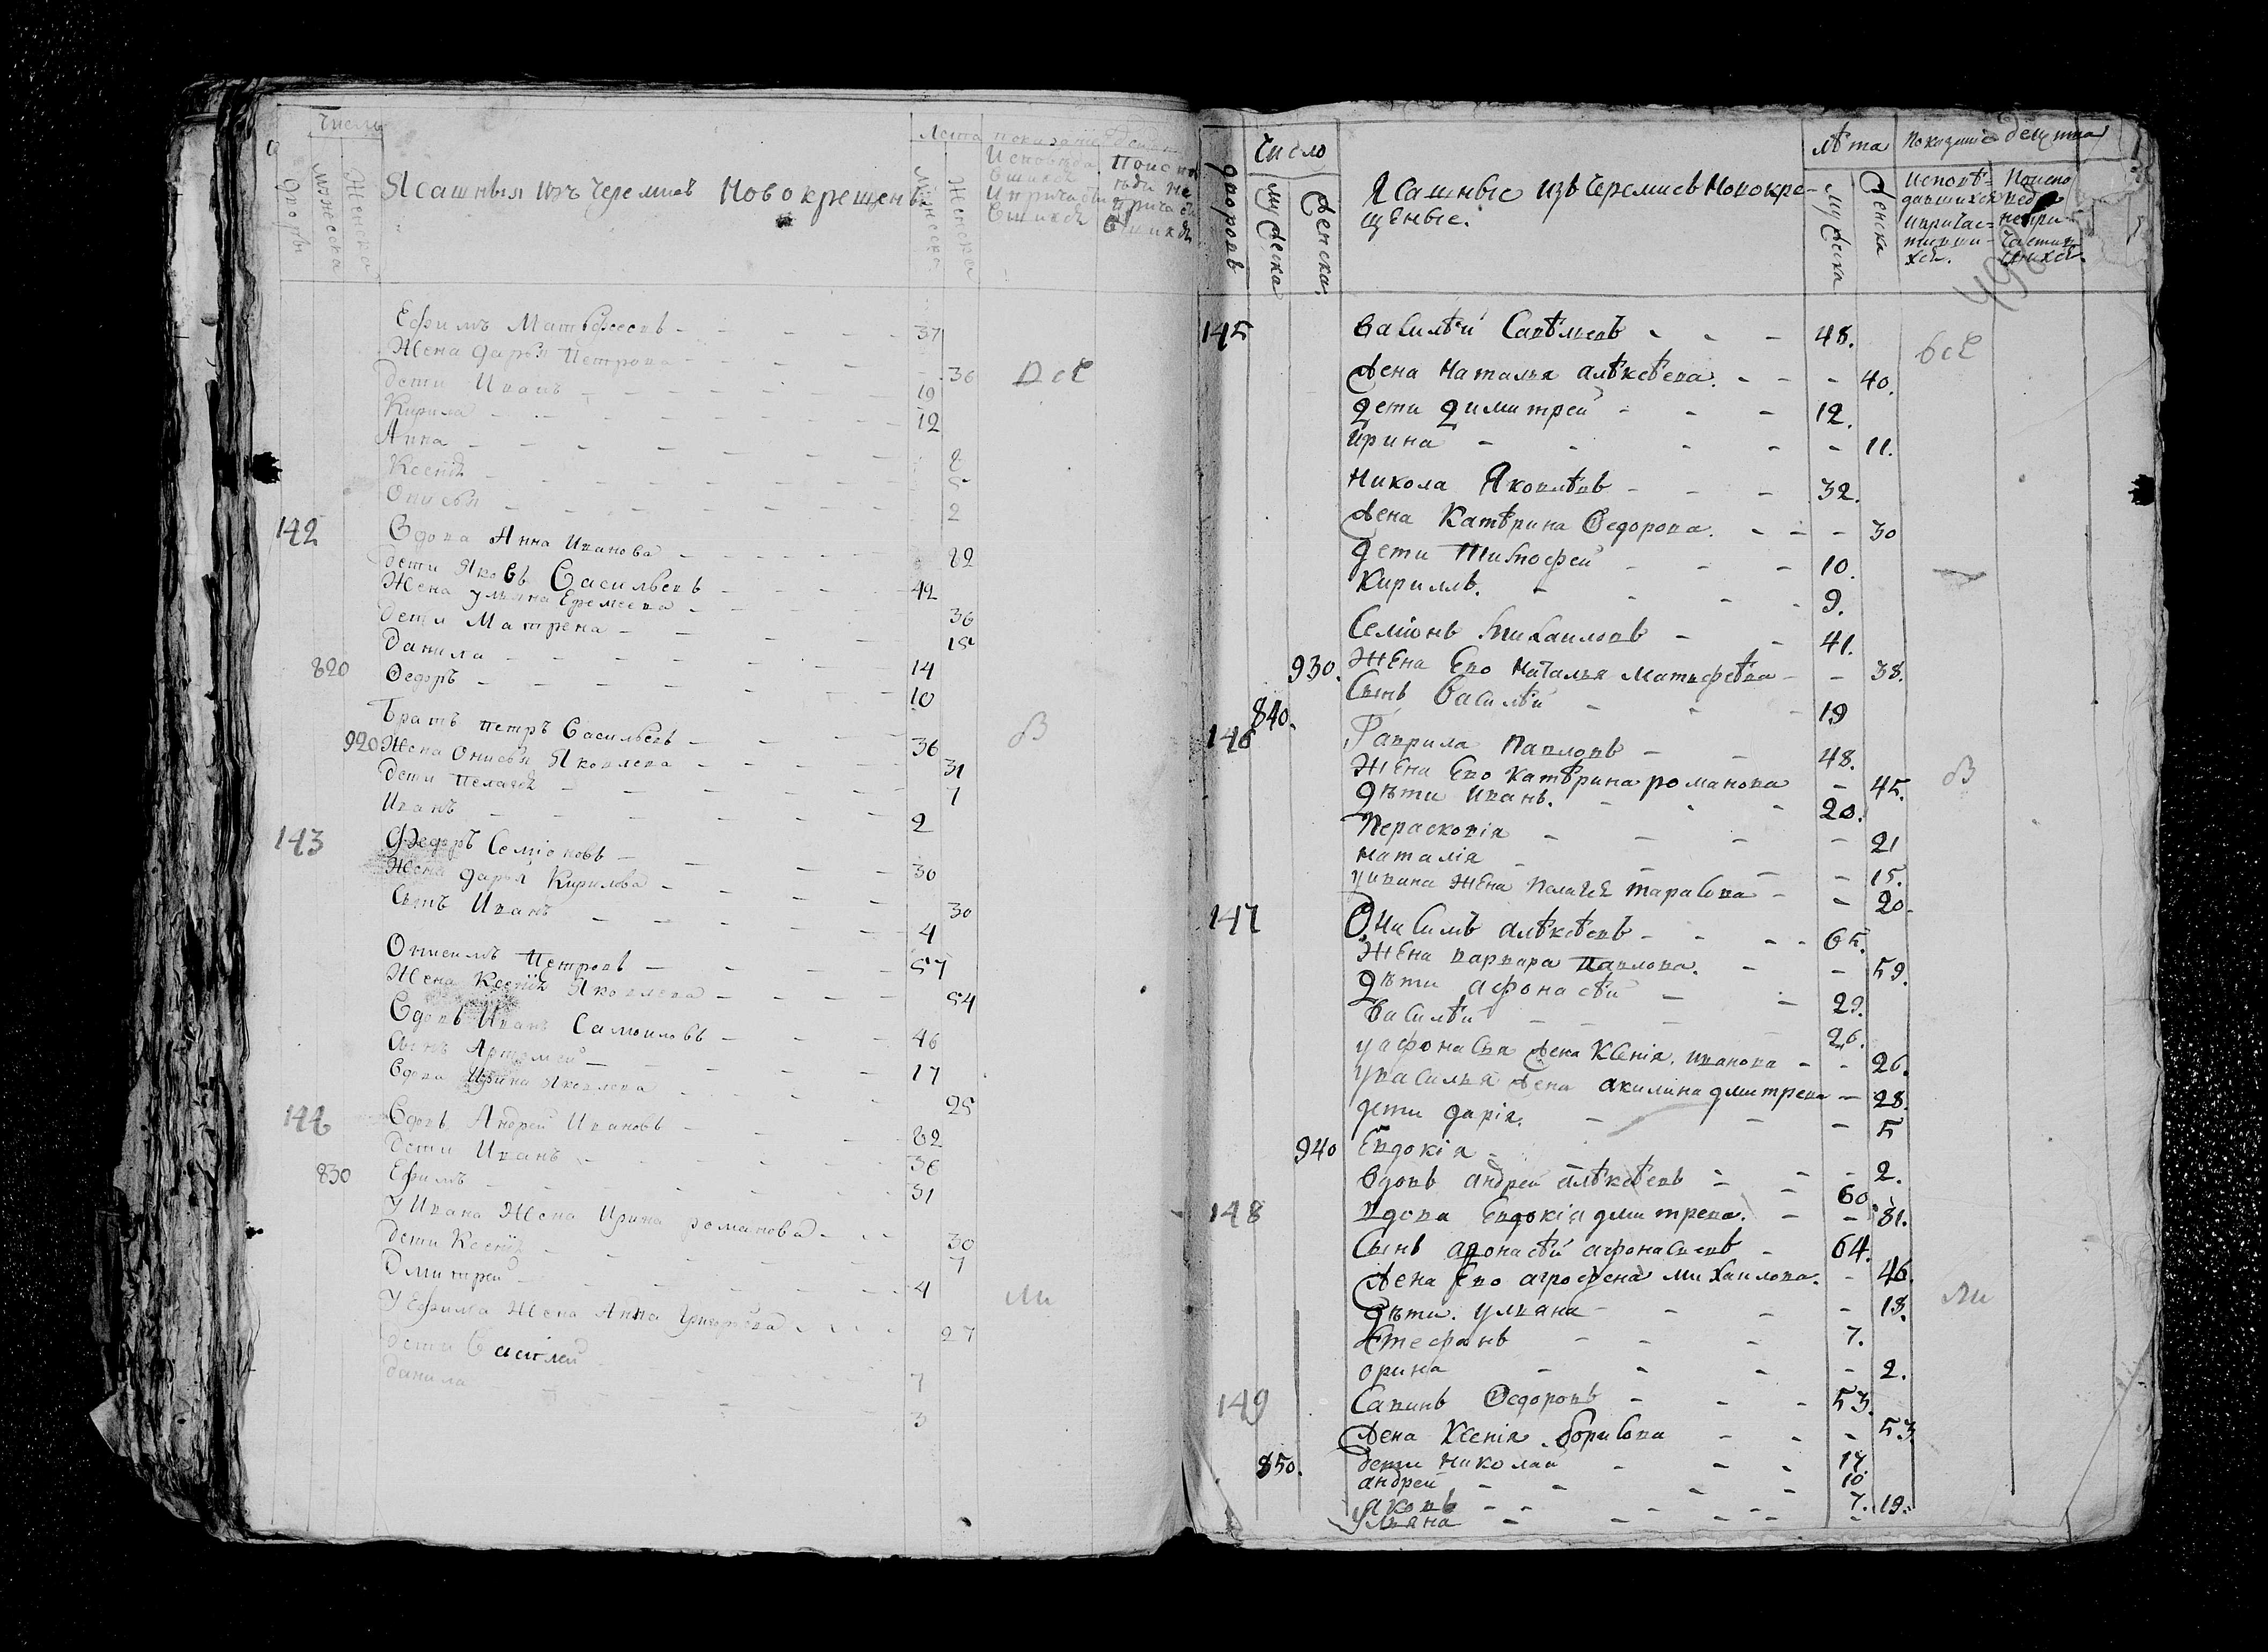 Число
Дворовъ
Мужеска
Женска
Ясашныя изъ черемисъ новокрещены
Лета
Мужеска
Женска
показание действа
Исповеда
вшихся
И причасти
вшихся
Ефимъ Матвѣеевъ - 37
Жена Дарья Петрова - 36
Всѣ
Дети Иванъ - 19
Кирила - 12
Анна - 8
Ксенія - 5
Онисья - 2
142 Вдова Анна Иванова - 82
Дети Яковъ Васильевъ - 42
Жена Ульяна Ефремеева - 36
Дети Матрена - 15
Данила - 14
820 Федоръ - 10
Братъ Петръ Васильевъ - 36
920 Жена Онисья Яковлева - 31
Дети Пелагея - 7
Иванъ - 2
143 Федоръ Семіоновъ - 30
Жена Дарья Кирилова - 30
Сынъ Иванъ - 4
Онисимъ Петровъ - 57
Жена Ксенія Яковлева - 54
Вдовъ Иванъ Самоиловъ - 46
Сынъ Артемей - 17
Вдова Ирина Яковлева - 25
144 Вдовъ Андрей Ивановъ - 82
Дети Иванъ - 36
830 Ефимъ - 31
У Ивана Жена Ирина романова - 30
Дети Ксенія - 7
Дмитрей - 4
У Ефима Жена Анна Григорьева - 27
Дети Василей - 7
Данила - 3
Число
Дворовъ
Мужеска
Женска
Ясашные изъ черемисъ новокре-
щеные.
лѣта
Мужеска
Женска
Показание действа
Исповѣ-
давшихся
и причас-
тивши-
хся.
145 Василѣй Савѣльевъ - 48.
Всѣ
Жена Наталья алѣксѣева. - 40.
Дети Димитрей - 12.
Ирина - 11.
Никола Яковлѣвъ - 32.
Жена Катѣрина Федорова. - 30
Дети Тимофей - 10.
Кириллъ. - 9.
Семіонъ Михаиловъ - 41.
930. Жена Ево Наталья Матвѣева - 38.
Сынъ Василѣй - 19
840.
146 Гаврила Павловъ - 48.
Жена Ево Катѣрина романова - 45.
Дѣти Иванъ. - 20.
Перасковія - 21
Наталія - 15.
У ивана Жена Палагея тарасова - 20.
147 Онисимъ алѣксѣевъ - 65.
Жена варвара Павлова. - 59.
Дѣти афонасѣй - 29.
Василѣй - 26.
У афонасья Жена Ксенія. иванова - 26.
У василья Жена акилина дмитрева - 28.
Дети Дарія. - 5
940 Евдокія - 2.
Вдовъ андрей алѣксѣевъ - 60
148 Вдова Евдокія дмитрева. - 81.
Сынъ афонасѣй афонасьевъ - 64.
Жена Ево агрофена михаилова. - 46.
Дѣти. Ульяна - 18.
Стефанъ - 7.
орина - 2.
149 Савинъ Федоровъ - 53.
Жена Ксенія Борисова - 53.
850. Дети Николай - 17.
андрей - 10
яковъ - 7.
Ульяна - 19.